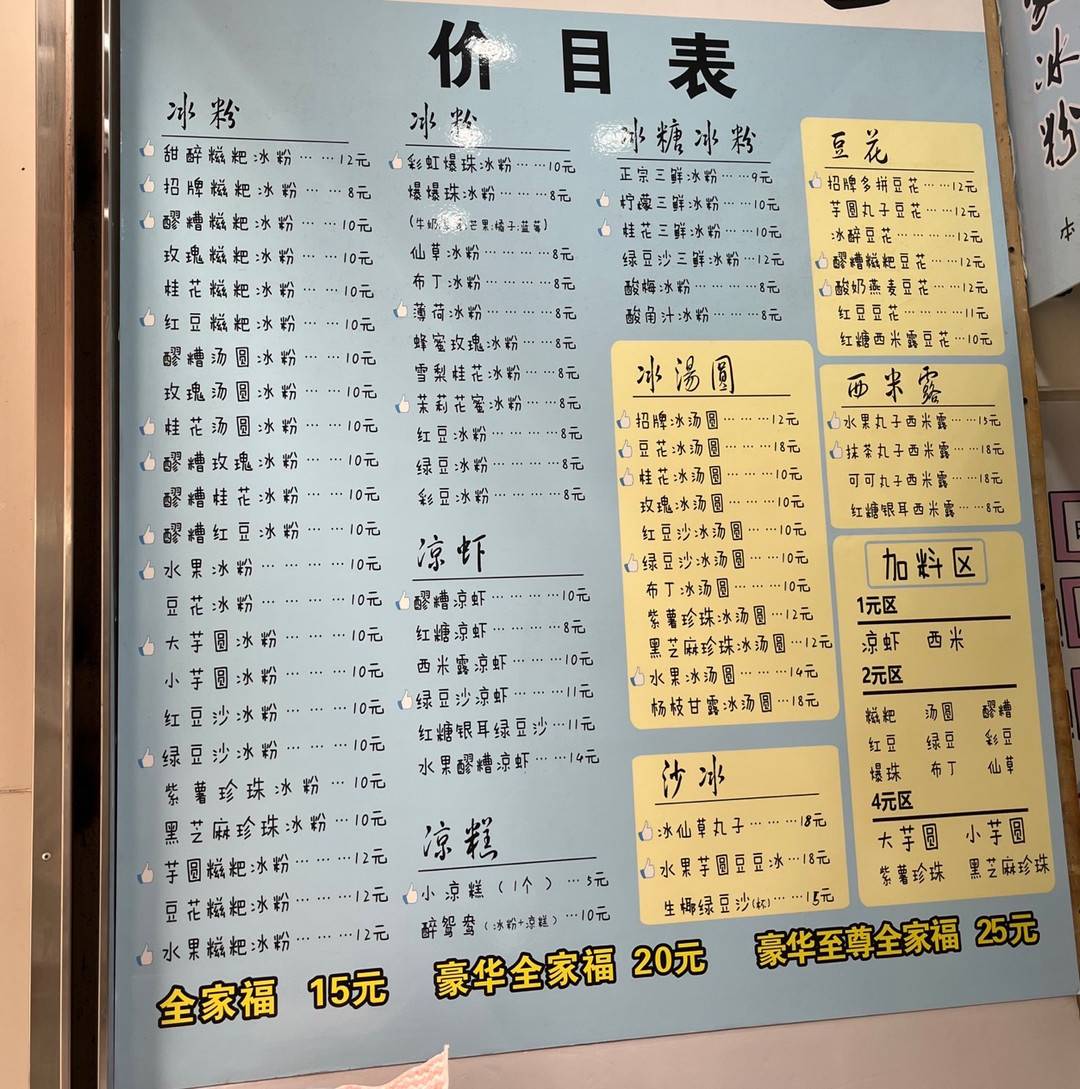 价目表
冰粉
甜醉糍粑冰粉……12元
招牌糍粑冰粉……8元
醪糟糍粑冰粉……10元
玫瑰糍粑冰粉……10元
桂花糍粑冰粉……10元
红豆糍粑冰粉……10元
醪糟汤圆冰粉……10元
玫瑰汤圆冰粉……10元
桂花汤圆冰粉……10元
醪糟玫瑰冰粉……10元
醪糟桂花冰粉……10元
醪糟红豆冰粉……10元
水果冰粉…………10元
豆花冰粉…………10元
大芋圆冰粉………10元
小芋圆冰粉………10元
红豆沙冰粉………10元
绿豆沙冰粉………10元
紫薯珍珠冰粉…10元
黑芝麻珍珠冰粉…10元
芋圆糍粑冰粉……12元
豆花糍粑冰粉……12元
水果糍粑冰粉………12元
冰粉
彩虹爆珠冰粉……10元
爆爆珠冰粉………8元
(牛奶 芒果:橘子:蓝莓)
仙草冰粉…………8元
布丁冰粉…………8元
薄荷冰粉…………8元
蜂蜜玫瑰冰粉……8元
雪梨桂花冰粉……8元
茉莉花蜜冰粉……8元
红豆冰粉…………8元
绿豆冰粉…………8元
彩豆冰粉…………8元
凉虾
醪糟凉虾…………10元
红糖凉虾…………8元
西米露凉虾………10元
绿豆沙凉虾………11元
红糖银耳绿豆沙…11元
水果醪糟凉虾……14元
凉糕
小凉糕（1个）…5元
醉鸳鸯（冰粉+凉糕）…10元
冰糖冰粉
正宗三鲜冰粉……9元
柠檬三鲜冰粉……10元
桂花三鲜冰粉……10元
绿豆沙三鲜冰粉…12元
酸梅冰粉…………8元
酸角汁冰粉………8元
冰湯圓
招牌冰汤圆………12元
豆花冰汤圆………18元
桂花冰汤圆………10元
玫瑰冰汤圆………10元
红豆沙冰汤圆……10元
绿豆沙冰汤圆……10元
布丁冰汤圆………10元
紫薯珍珠冰汤圆…12元
黑芝麻珍珠冰汤圆…12元
水果冰汤圆………14元
杨枝甘露冰汤圆…18元
沙冰
冰仙草丸子………18元
水果芋圆豆豆冰…18元
生椰绿豆沙(杯)……15元
豆花
招牌多拼豆花……12元
芋圆丸子豆花……12元
冰醉豆花…………12元
醪糟糍粑豆花……12元
酸奶燕麦豆花……12元
红豆豆花…………11元
红糖西米露豆花…10元
西米露
水果丸子西米露……15元
抹茶丸子西米露……18元
可可丸子西米露……18元
红糖银耳西米露……8元
加料区
1元区
凉虾 西米
2元区
糍粑 汤圆 醪糟
红豆 绿豆 彩豆
爆珠 布丁 仙草
4元区
大芋圆 小芋圆
紫薯珍珠 黑芝麻珍珠
全家福 15元 豪华全家福 20元 豪华至尊全家福 25元
冰粉
本